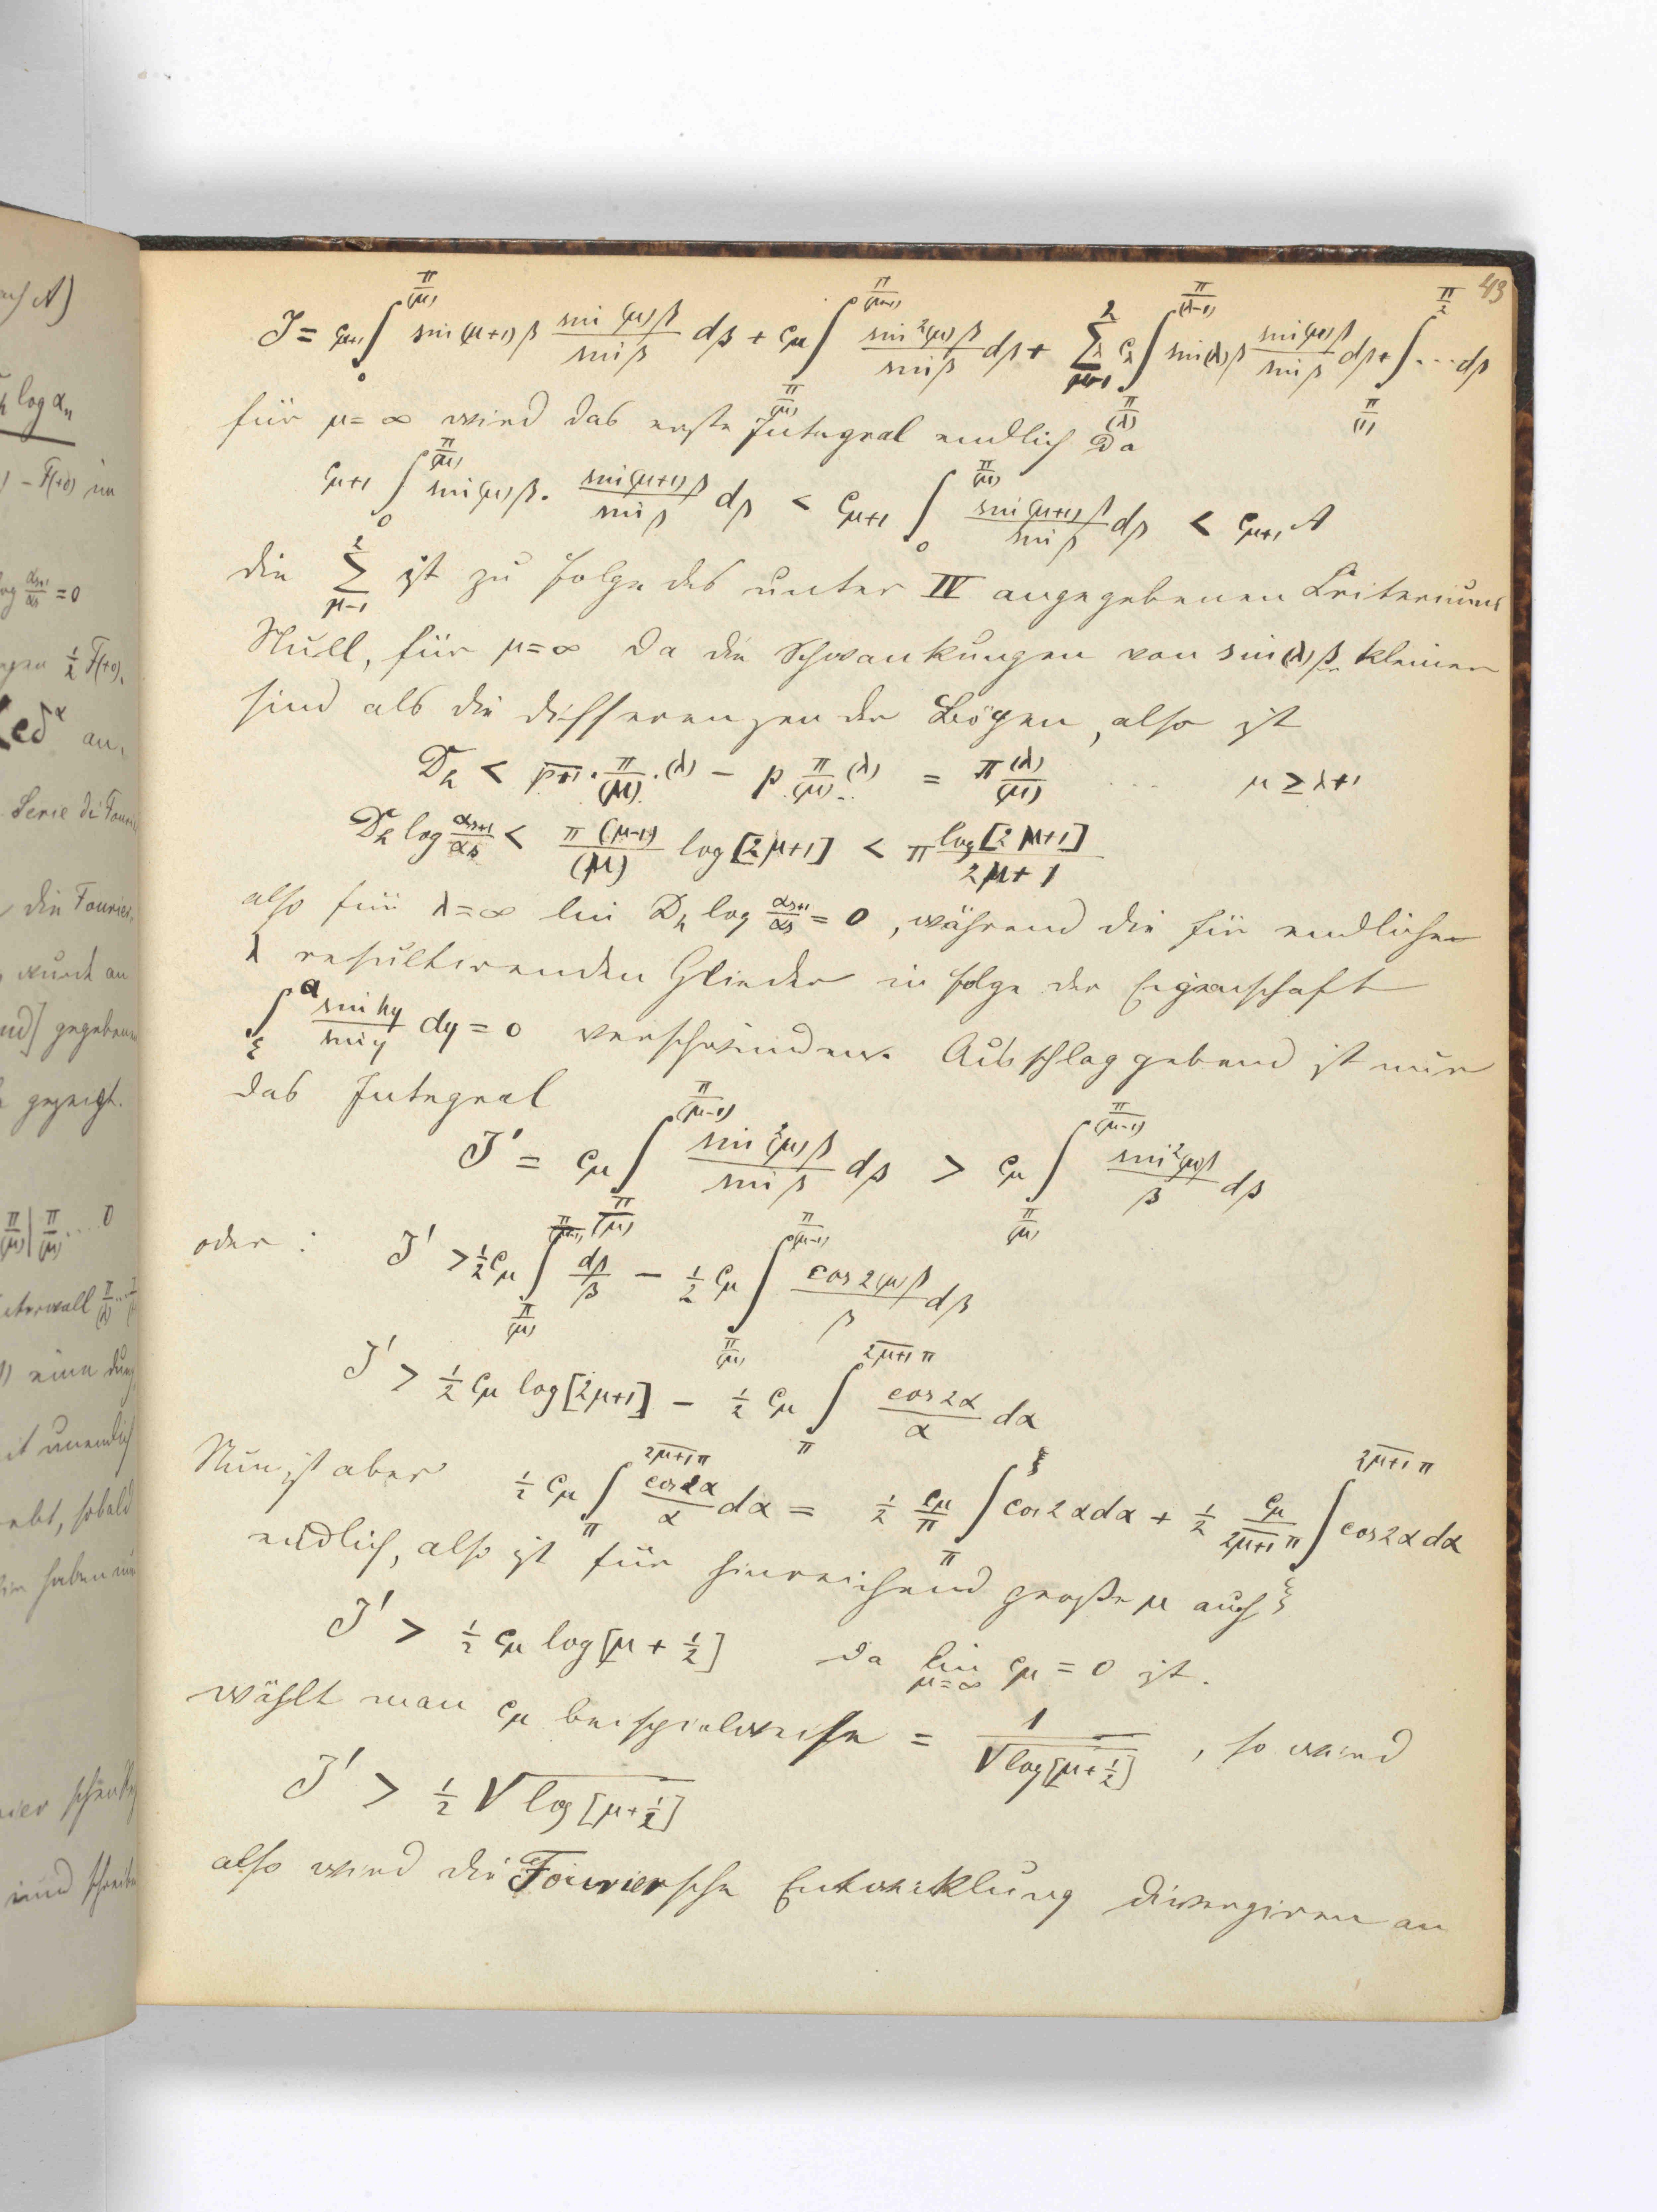 43
J = c_{μ+1} ∫_0^{π/(μ)} sin(μ+1)β sin(μ)β/sinβ dβ + c_μ ∫_{π/(μ)}^{π/(μ-1)} sin²(μ)β/sinβ dβ + Σ_{μ-1}^{2} λ c_λ ∫_{π/(λ)}^{π/(λ-1)} sin(λ)β sin(μ)β/sinβ dβ + ∫_{π/(1)}^{π/2} ... dβ
für μ=∞ wird das erste Integral endlich da
c_{μ+1} ∫_0^{π/(μ)} sin(μ)β . sin(μ+1)β/sinβ dβ < c_{μ+1} ∫_0^{π/(μ)} sin(μ+1)β/sinβ dβ < c_{μ+1} A
die Σ_{μ-1}^{2} ist zu folge des unter IV angegebenen Criteriums
Null, für μ=∞ da die Schwankungen von sin(λ)β kleiner
sind als die differenzen der Bögen, also ist
D_h < p+1 . π/(μ) . (λ) − p π/(μ) (λ) = π (λ)/(μ) ... μ ≥ λ+1
D_h log α_{s+1}/α_s < π(μ-1)/(μ) log[2μ+1] < π log[2μ+1]/2μ+1
also für λ=∞ lim D_h log α_{s+1}/α_s = 0, während die für endliche
λ resultirenden Glieder in folge der Eigenschaft
∫_ξ^a sin hy/sin y dy = 0 verschwinden. Ausschlag gebend ist nur
das Integral
J' = c_μ ∫_{π/(μ)}^{π/(μ-1)} sin²(μ)β/sinβ dβ > c_μ ∫_{π/(μ)}^{π/(μ-1)} sin²(μ)β/β dβ
oder : J' > ½ c_μ ∫_{π/(μ)}^{π/(μ-1)} dβ/β − ½ c_μ ∫_{π/(μ)}^{π/(μ-1)} cos2(μ)β/β dβ
J' > ½ c_μ log[2μ+1] − ½ c_μ ∫_π^{2μ+1 π} cos2α/α dα
Nun ist aber ½ c_μ ∫_π^{2μ+1 π} cos2α/α dα = ½ c_μ/π ∫_π^ξ cos2αdα + ½ c_μ/2μ+1 π ∫_ξ^{2μ+1 π} cos2αdα
endlich, also ist für hinreichend große μ auch
J' > ½ c_μ log[μ + ½] da lim_{μ=∞} c_μ = 0 ist.
wählt man c_μ beispielweise = 1/√log[μ+½] , so wird
J' > ½ √log[μ+½]
also wird die Fouriersche Entwicklung divergiren an